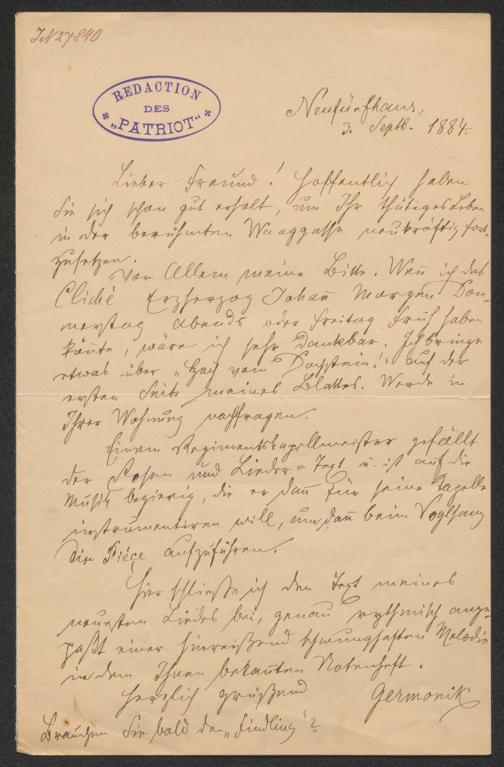 IN 27840
REDACTION
DES
„PATRIOT“
Neufünfhaus,
3. Septb. 1884.
Lieber Freund! Hoffentlich haben
Sie sich schon gut erholt, um Ihr thätiges Leben
in der berühmten Waaggasse neukräftig fort-
zusetzen.
Vor Allem meine Bitte. Wenn ich das
Cliché Erzherzog Johan̅ Morgen Don-
nerstag Abends oder Freitag Früh haben
kön̅te, wäre ich sehr dankbar. Ich bringe
etwas über „Hoch vom Dachstein“ auf der
ersten Seite meines Blattes. Werde in
Ihrer Wohnung nachfragen.
Einem Regimentskapellmeister gefällt
der Rosen und Lieder=Text u. ist auf die
Musik begierig, die er dan̅ für seine Kapelle
instrumentiren will, um dan̅ beim Voglsang
die Piéçe aufzuführen.
Hier schließe ich den Text meines
neuesten Liedes bei, genau rythmisch ange-
paßt einer hinreißend schwunghaften Melodie
in dem Ihnen bekan̅ten Notenheft.
Herzlich grüßend
Germonik
Brauchen Sie bald den „Findling“?